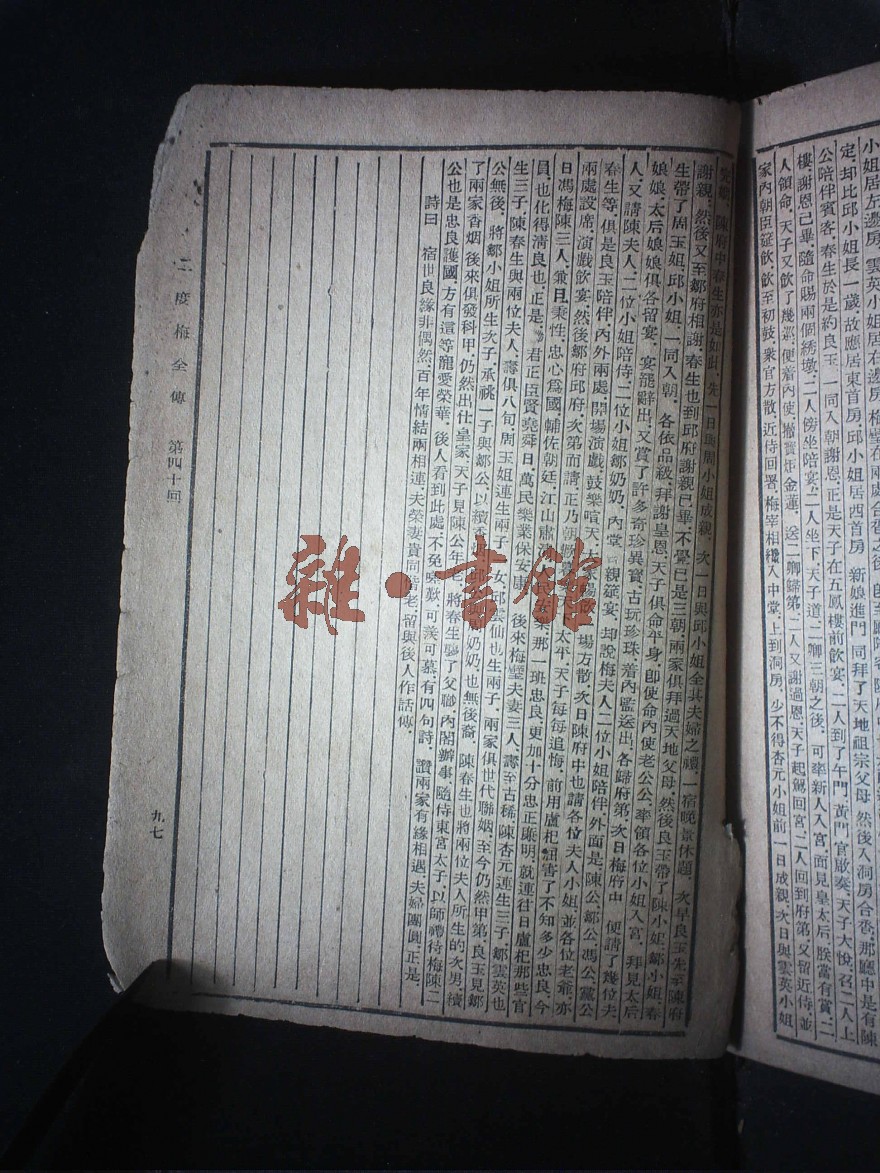 小姐居左邊房雲英小姐居右邊房梅璧在兩處合卺之後
定却比邱小姐長一歲故應居東首房邱小姐居西首房 新娘進門同拜了天地祖宗父母然後入洞房合卺那廳中是有陳
公陪伴賓客春生於是約良玉一同入朝謝恩正是天子在五鳳樓前飲宴二人到了午門黃門官啟奏天子大悅召二人上
樓謝恩已畢隨命賜兩個綉墩二人傍坐陪宴二人坐下天子道二卿三朝之後 可率新人入宮面見皇太后朕當有賞二
人領命天子又飲了幾巡便着內使撤寶炬金蓮送二卿歸第二人又謝過恩天子起駕回宮二人回到府第又留近侍並
家內朝臣筵飲飲至初鼓衆官方散近侍回署梅宰相攙人中堂上到洞房少不得杏元小姐前一日成親次日與雲英小姐
陳府中春生亦是如此先一日與周小姐成親次一日與邱小姐全其夫婦之禮一宿晚景休題 次早良玉先至陳府
謝親然後又至鄒府相謝春生也到邱府謝親已畢不覺已是三朝兩家俱拜過天地父母然後良玉帶了陳小姐鄒小姐春
生帶了周玉姐邱小姐一同入朝 各依品級拜謝皇恩天子俱命平身即使命內使老公公率領各位小姐入宮拜見太后
娘娘太后娘娘俱各留宴 宴罷辭出又賞了許多奇珍異寶古玩珍珠着內監送出各歸府第次日梅府中 便請了幾位夫
人又請陳夫人二位小姐陪侍二位小姐鄒奶奶內堂 親筵宴 却說梅夫人二位小姐陪伴外面是陳公鄒公馮公黨公
春生等俱是良玉陪伴內外兩處開場演戲鼓樂喧天大 場方散次日陳府中也請各位夫人小姐並各位老爺亦
兩處設席演戲飲宴然後鄒府邱府次第而請正乃朝 太平天子每每追悔 前用盧杞 害了不知多少忠良今
日馮梅陳三人兼且秉性 忠心爲國輔佐朝廷江山肅 樂那一班忠良更加十分忠正廉明就連往日盧杞那些官
員也化得清良也正是 君正臣賢堯舜日萬民樂業保安康 後來梅璧夫妻三人壽至古稀陳杏元連生三子鄒雲英也
生三子陳春生與兩位夫人壽俱八旬周玉姐連生兩子 女邱雲仙也生兩子兩家俱世代聯姻至今仍然甲第良玉見鄒
公無後將鄒小姐所生次子承祧一子與鄒公以續香 邱 奶奶也無後裔 陳春生也將兩位夫人所生的次男續
了兩家香烟後來俱發科甲仍然出仕皇家天子見陳公年老將春生襲了父職內閣辦事隨侍東宮太子以師禮待梅陳二
公也是忠良護國方有這等寵愛榮華後人看到此處不免嘆歎可羨可慕有四句詩 讚兩家有緣相遇夫婦團圓正是
詩曰 宿世良緣非偶然百年情結兩相連夫榮妻貴同偕老留與後人作話傳
二度梅全傳 第四十回
九七
雜·書館